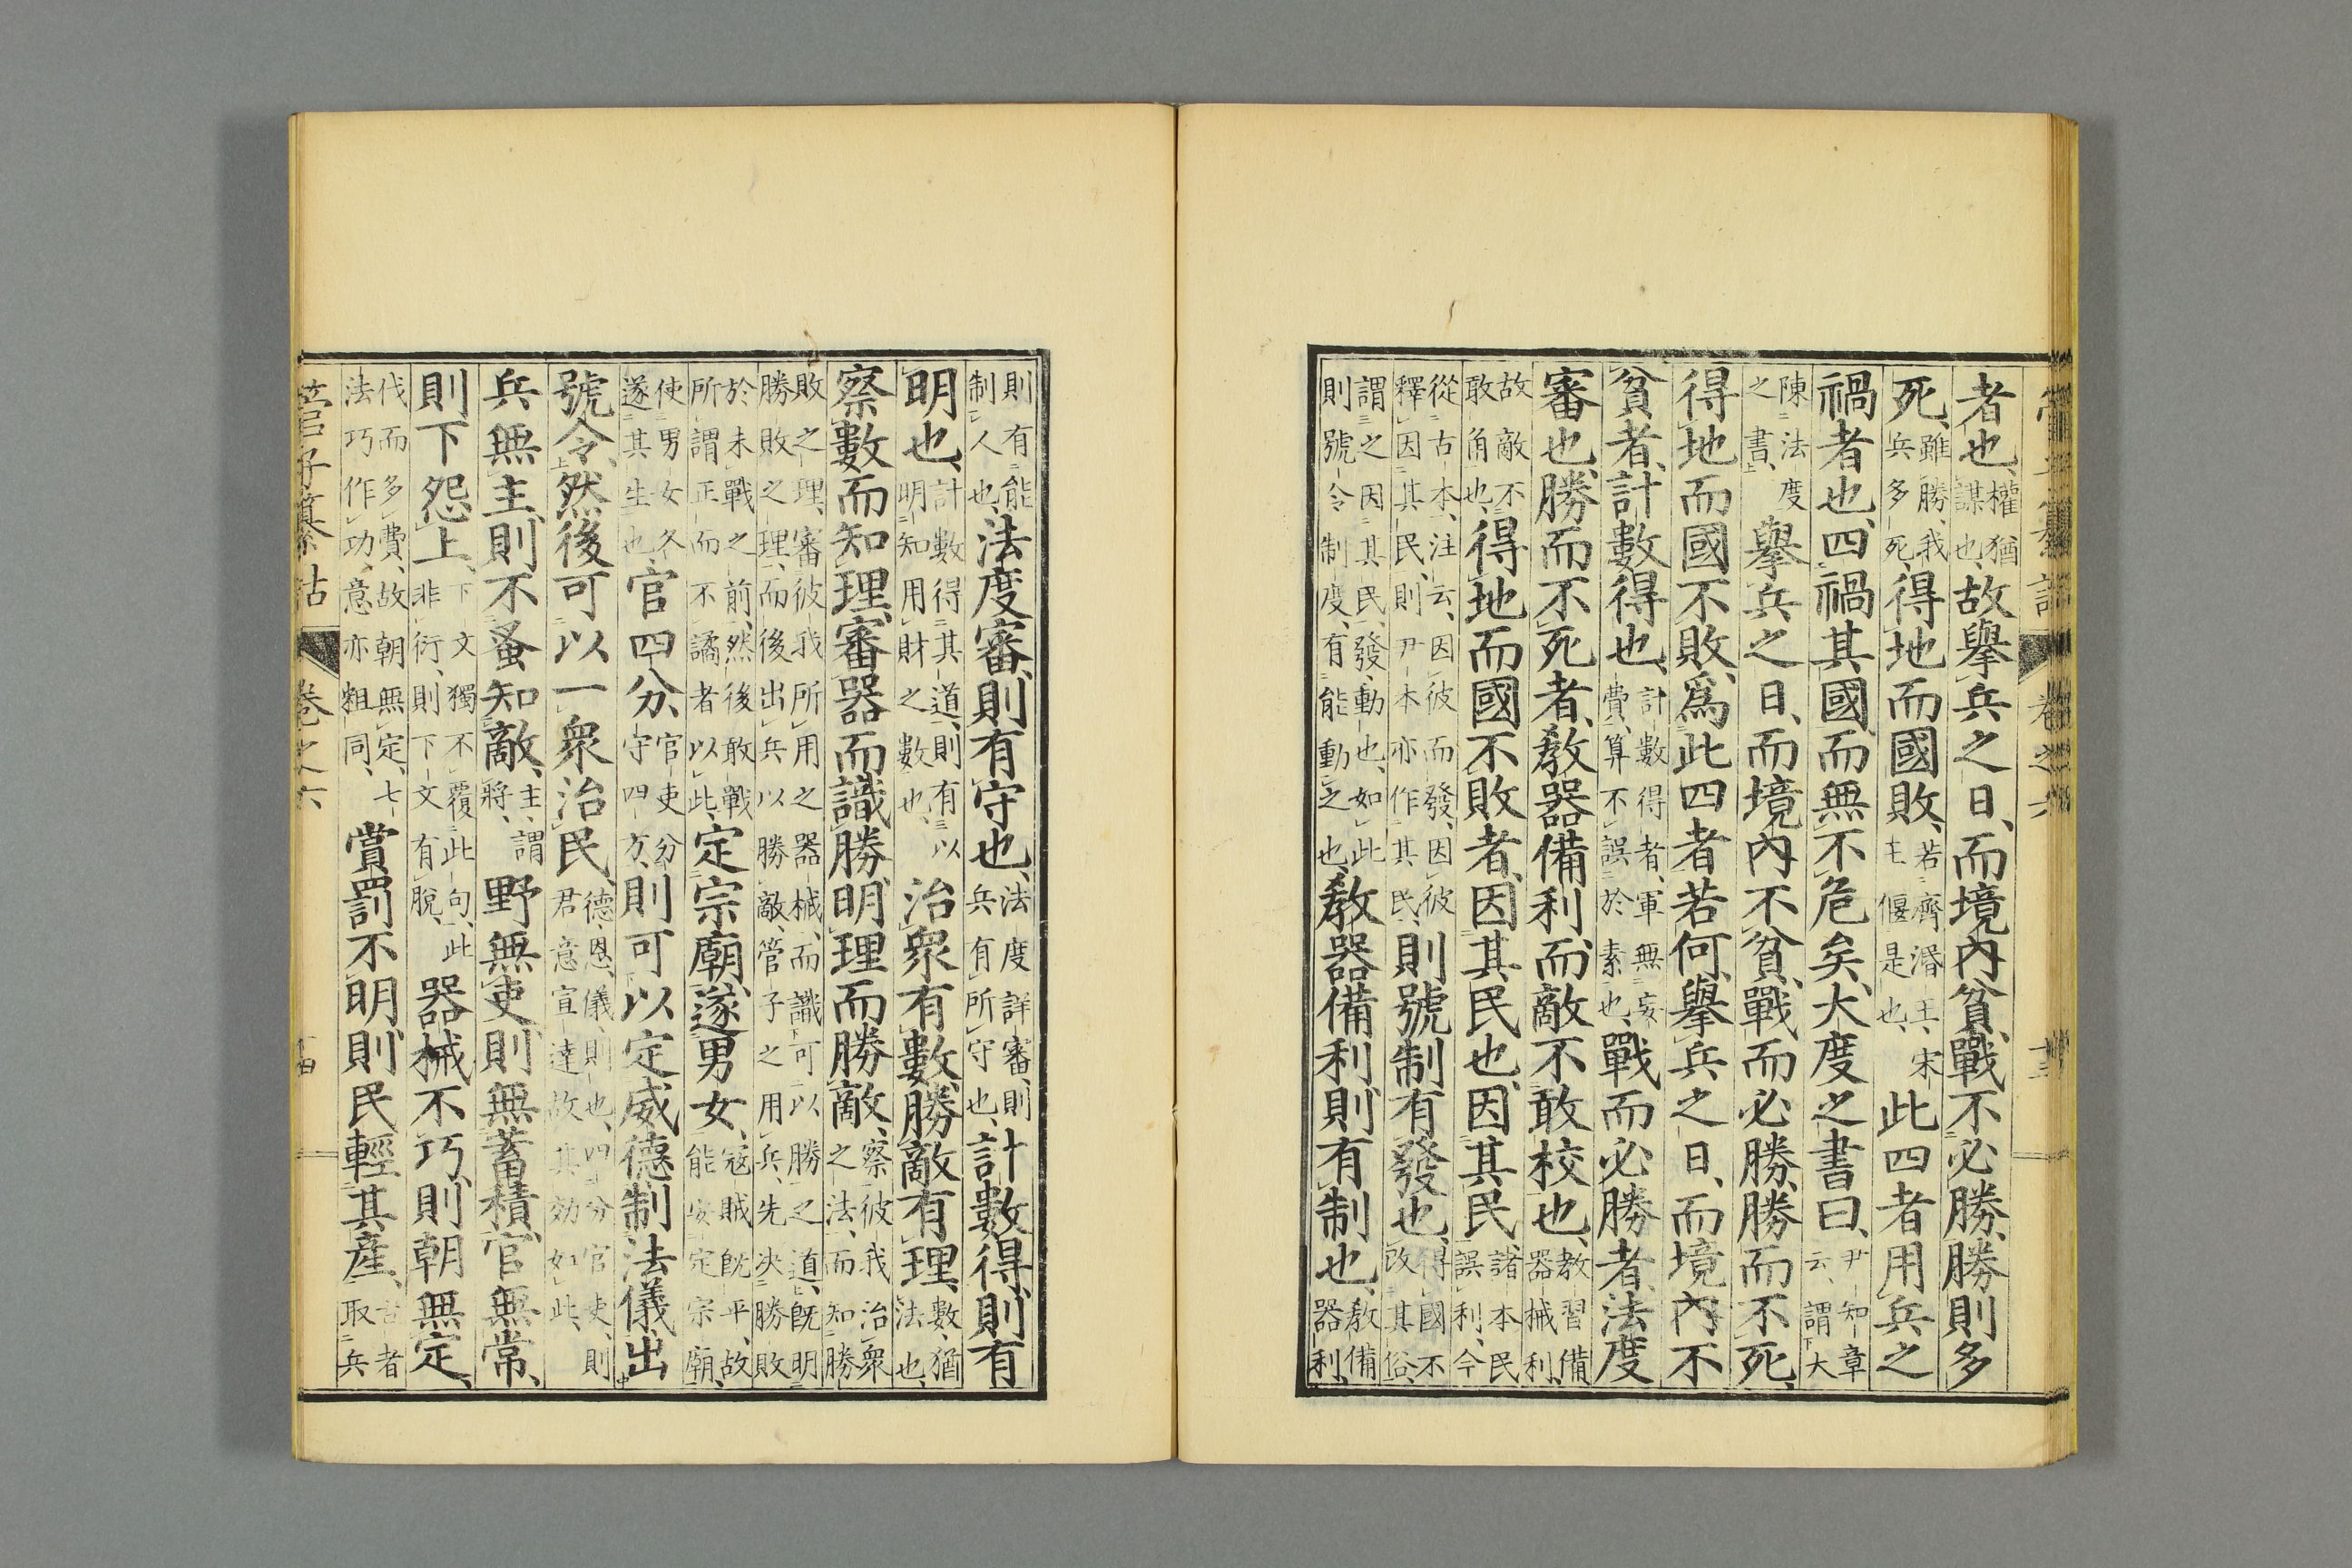 管子纂詁 卷之六 十三
者也、權猶謀也、故擧兵之日、而境內貧、戰不必勝、勝則多
死、雖勝、我兵多死、得地而國敗、若齊湣王、宋王偃是也、此四者用兵之
禍者也、四禍其國、而無不危矣、大度之書曰、尹知章云、謂大
陳法度之書、擧兵之日、而境內不貧、戰而必勝、勝而不死、
得地而國不敗、爲此四者若何、擧兵之日、而境內不
貧者、計數得也、計數得者、軍無妄費、算不誤於素也、戰而必勝者、法度
審也、勝而不死者、敎器備利、而敵不敢校也、敎習備、器械利、
故敵不敢角也、得地而國不敗者、因其民也、因其民、諸本民誤利、今
從古本、注云、因彼而發、因彼釋因其民、則尹本亦作其民、則號制有發也、得國不改其俗、
謂之因其民、發、動也、如此則號令制度、有能動之也、敎器備利、則有制也、敎備器利、
則有能制人也、法度審、則有守也、法度詳審、則兵有所守也、計數得、則有
明也、計數得其道、則有以明知用財之數也、治衆有數、勝敵有理、數、猶法也、
察數而知理、審器而識勝、明理而勝敵、察彼我治衆之法、而知勝
敗之理、審彼我所用之器械、而識可以勝之道、旣明勝敗之理、而後出兵以勝敵、管子之用兵、先決勝敗
於未戰之前、然後敢戰、所謂正而不譎者以此、定宗廟、遂男女、寇賊旣平、故能安定宗廟、
使男女各遂其生也、官四分、官吏分守四方、則可以定威德、制法儀、出
號令、然後可以一衆治民、德、恩、儀、則也、四分官吏、則君意宣達、故其効如此、
兵無主、則不蚤知敵、主、謂將、野無吏、則無蓄積、官無常、
則下怨上、下文獨不覆此句、此非衍、則下文有脫、器械不巧、則朝無定、
伐而多費、故朝無定、七法巧作功、意亦粗同、賞罰不明、則民輕其產、古者取兵
管子纂詁 卷之六 十四